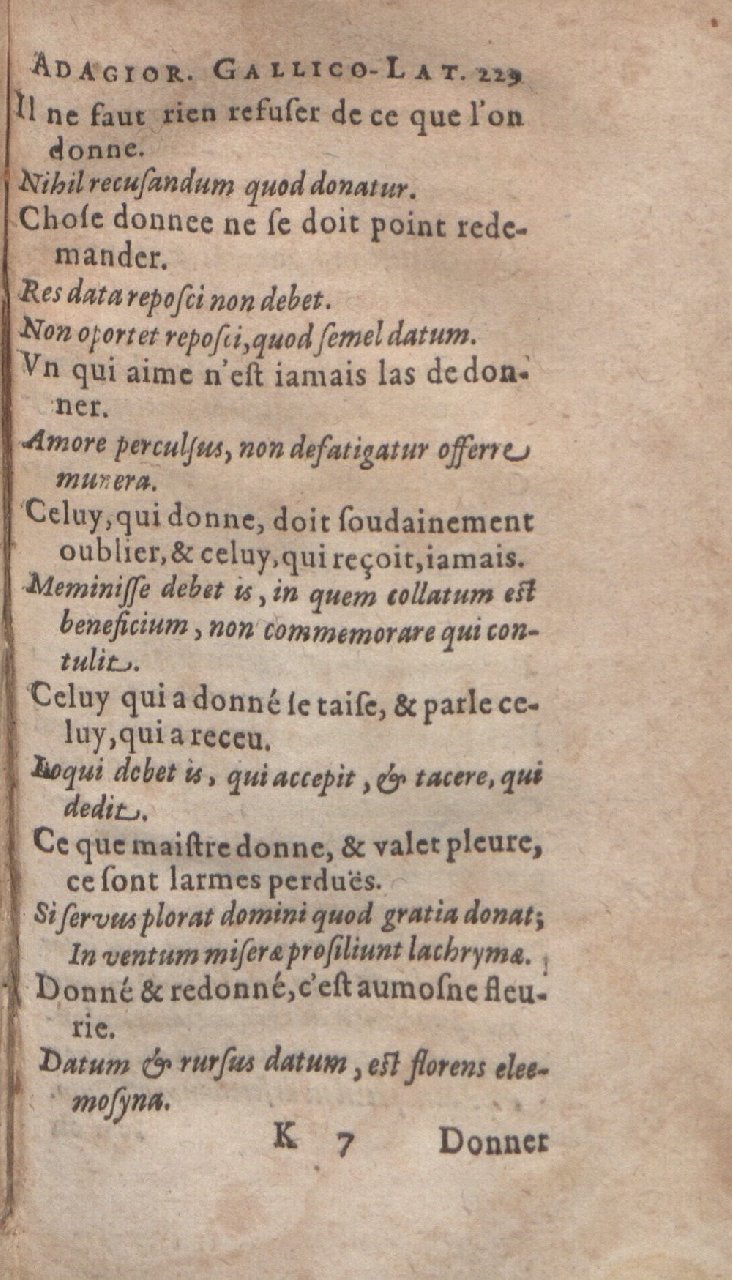 ADAGIOR. GALLICO-LAT. 229
Il ne faut rien refuſer de ce que l'on
donne.
Nihil recuſandum quod donatur.
Choſe donnee ne ſe doit point rede-
mander.
Res data repoſci non debet.
Non oportet repoſci, quod ſemel datum.
Vn qui aime n'eſt iamais las de don-
ner.
Amore perculſus, non defatigatur offerre
munera.
Celuy, qui donne, doit ſoudainement
oublier, & celuy, qui reçoit, iamais.
Meminiſſe debet is, in quem collatum eſt
beneficium, non commemorare qui con-
tulit.
Celuy qui a donné ſe taiſe, & parle ce-
luy, qui a receu.
Loqui debet is, qui accepit, & tacere, qui
dedit.
Ce que maiſtre donne, & valet pleure,
ce ſont larmes perduës.
Si ſervus plorat domini quod gratia donat;
In ventum miſeræ proſiliunt lachrymæ.
Donné & redonné, c'eſt aumoſne fleu-
rie.
Datum & rurſus datum, eſt florens elee-
moſyna.
K 7 Donner